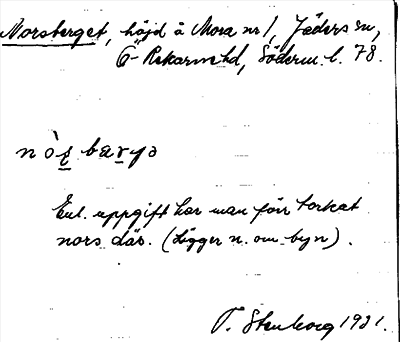 Norsberget, höjd å Mora nr 1, Jäders sn,
Ö-Rekarne hd, Söderm. l. 78.
nòr̤ bar̤yə
Enl. uppgift har man förr torkat
nors där. (Ligger n. om byn).
T. Stenborg 1931.